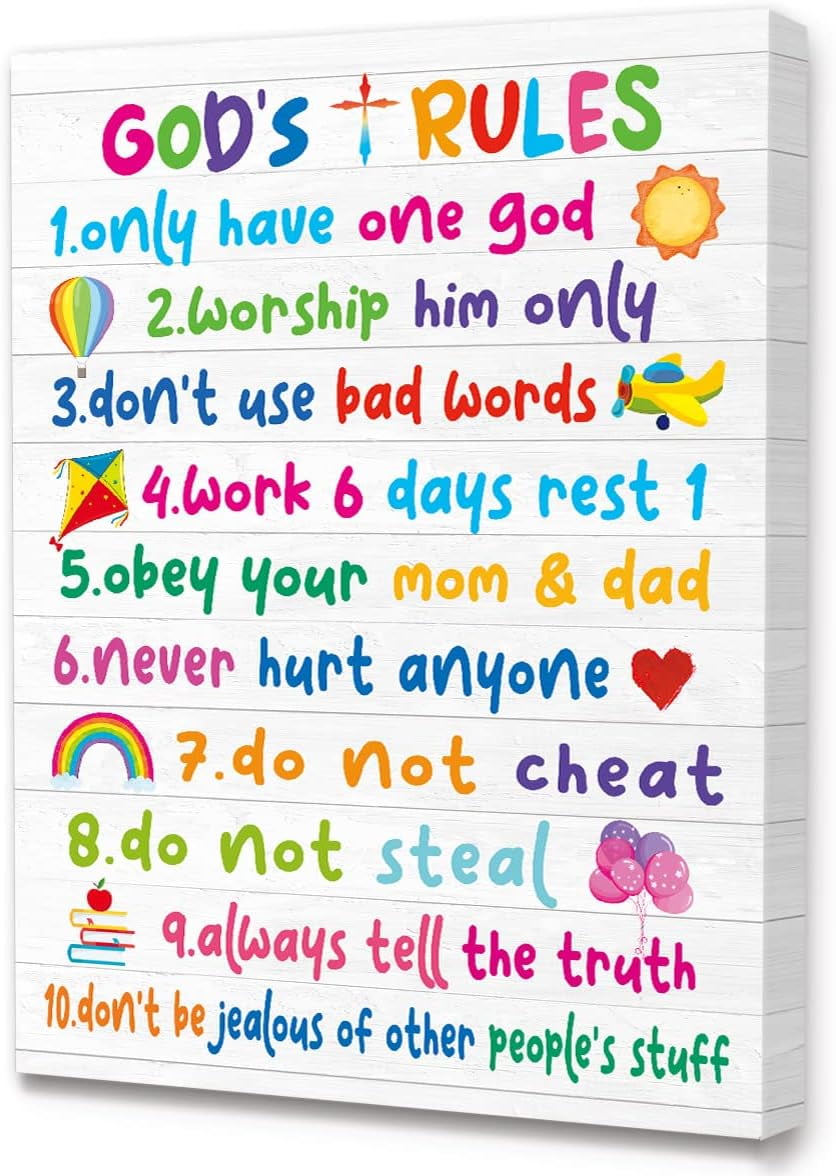 GOD'S RULES
1.only have one god
2.worship him only
3.don't use bad words
4.work 6 days rest 1
5.obey your mom & dad
6.never hurt anyone
7.do not cheat
8.do not steal
9.always tell the truth
10.don't be jealous of other people's stuff